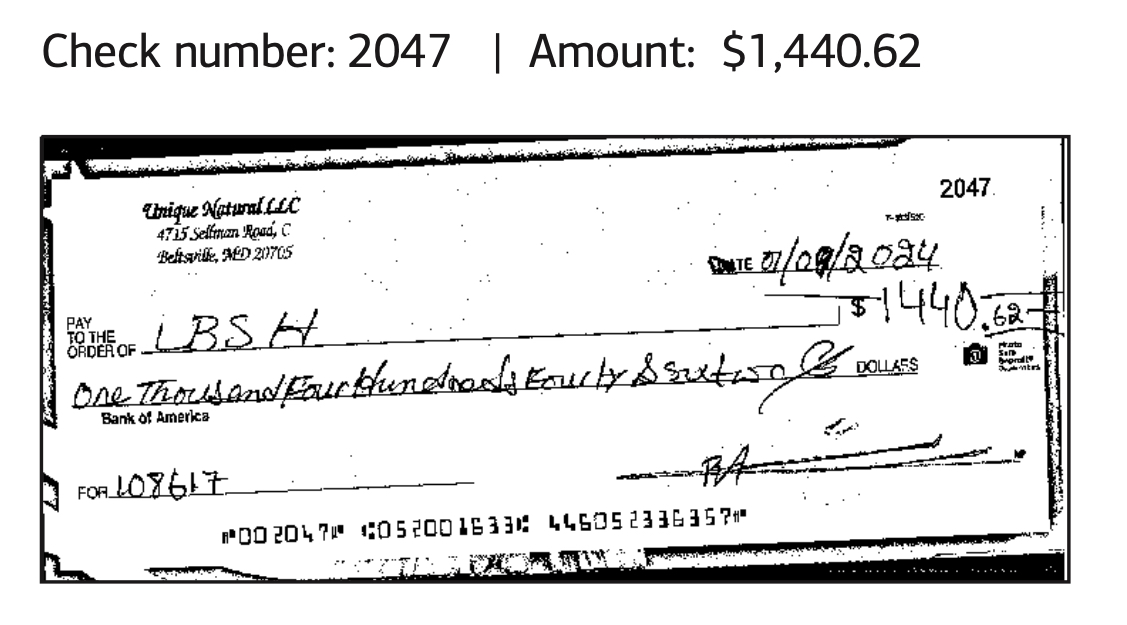 Check number: 2047 | Amount: $1,440.62
2047
Unique Natural LLC
4715 Sellman Road, C
Beltsville, MD 20705
DATE 01/09/2024
PAY TO THE ORDER OF LBSH $1440.62
One Thousand Four Hundreads Fourty & sixtwo DOLLARS
Photo Safe Deposit®
Bank of America
FOR 108617 BA MP
⑈002047⑈ ⑆052001633⑆ 446052336357⑈